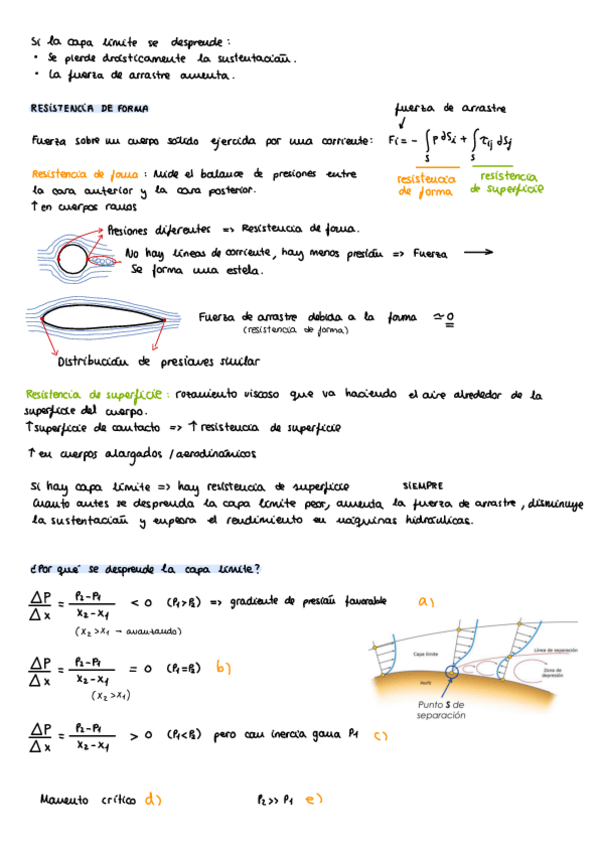 Si la capa límite se desprende:
• Se pierde drásticamente la sustentación.
• La fuerza de arrastre aumenta.
RESISTENCIA DE FORMA
fuerza de arrastre
Fuerza sobre un cuerpo sólido ejercida por una corriente: Fi = - ∫s p dSi + ∫s τij dSj
Resistencia de forma: Mide el balance de presiones entre
la cara anterior y la cara posterior.
resistencia de forma
resistencia de superficie
↑ en cuerpos romos
Presiones diferentes => Resistencia de forma.
No hay líneas de corriente, hay menos presión => Fuerza →
Se forma una estela.
Fuerza de arrastre debida a la forma ≃ 0
(resistencia de forma)
Distribución de presiones similar
Resistencia de superficie: rozamiento viscoso que va haciendo el aire alrededor de la
superficie del cuerpo.
↑ superficie de contacto => ↑ resistencia de superficie
↑ en cuerpos alargados / aerodinámicos
Si hay capa límite => hay resistencia de superficie SIEMPRE
Cuanto antes se desprenda la capa límite peor, aumenta la fuerza de arrastre, disminuye
la sustentación y empeora el rendimiento en máquinas hidráulicas.
¿Por qué se desprende la capa límite?
ΔP/Δx = P2-P1/X2-X1 < 0 (P1>P2) => gradiente de presión favorable a)
(X2>X1 → avanzando)
ΔP/Δx = P2-P1/X2-X1 = 0 (P1=P2) b)
(X2>X1)
Capa límite
Línea de separación
Zona de depresión
Perfil
Punto S de
separación
ΔP/Δx = P2-P1/X2-X1 > 0 (P1<P2) pero con inercia gana P1 c)
Momento crítico d) P2>>P1 e)